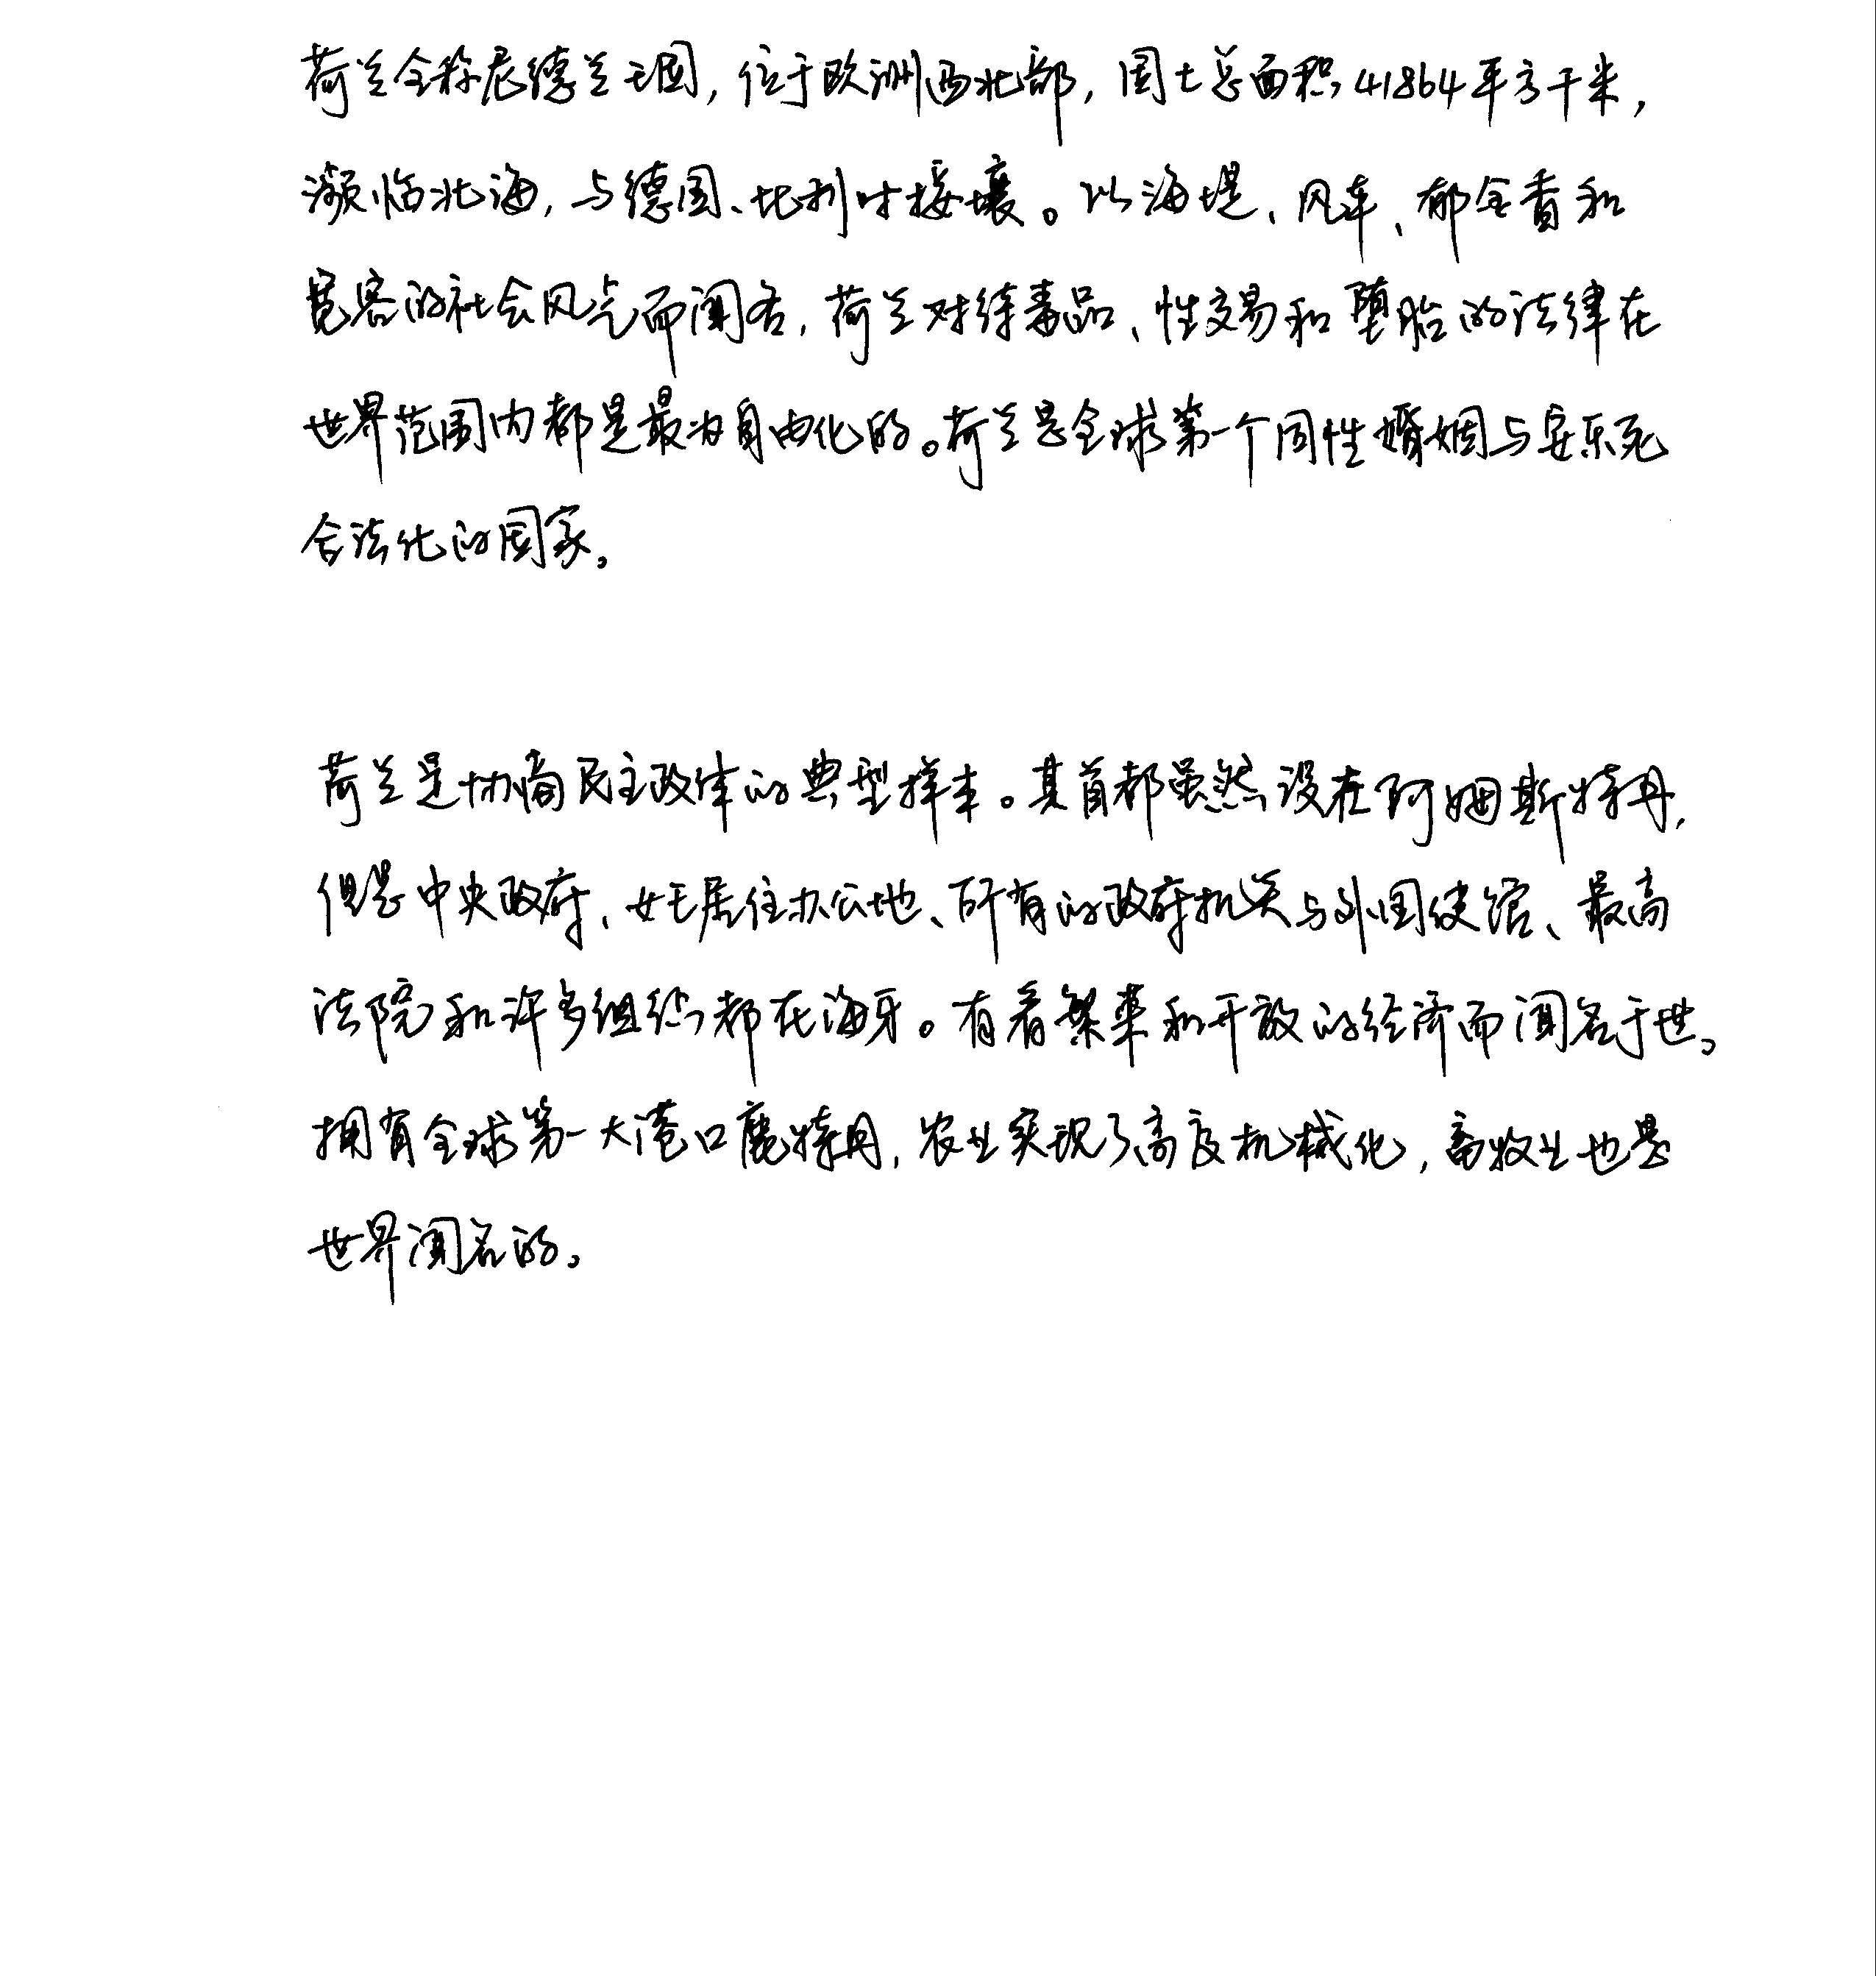 荷兰全称尼德兰王国,位于欧洲西北部,国土总面积41864平方千米,
濒临北海,与德国、比利时接壤。以海堤、风车、郁金香和
宽容的社会风气而闻名,荷兰对待毒品、性交易和堕胎的法律在
世界范围内都是最为自由化的。荷兰是全球第一个同性婚姻与安乐死
合法化的国家。
荷兰是协商民主政体的典型样本。其首都虽然设在阿姆斯特丹,
但是中央政府、女王居住办公地、所有的政府机关与外国使馆、最高
法院和许多组织都在海牙。有着繁荣和开放的经济而闻名于世。
拥有全球第一大港口鹿特丹,农业实现了高度机械化,畜牧业也是
世界闻名的。